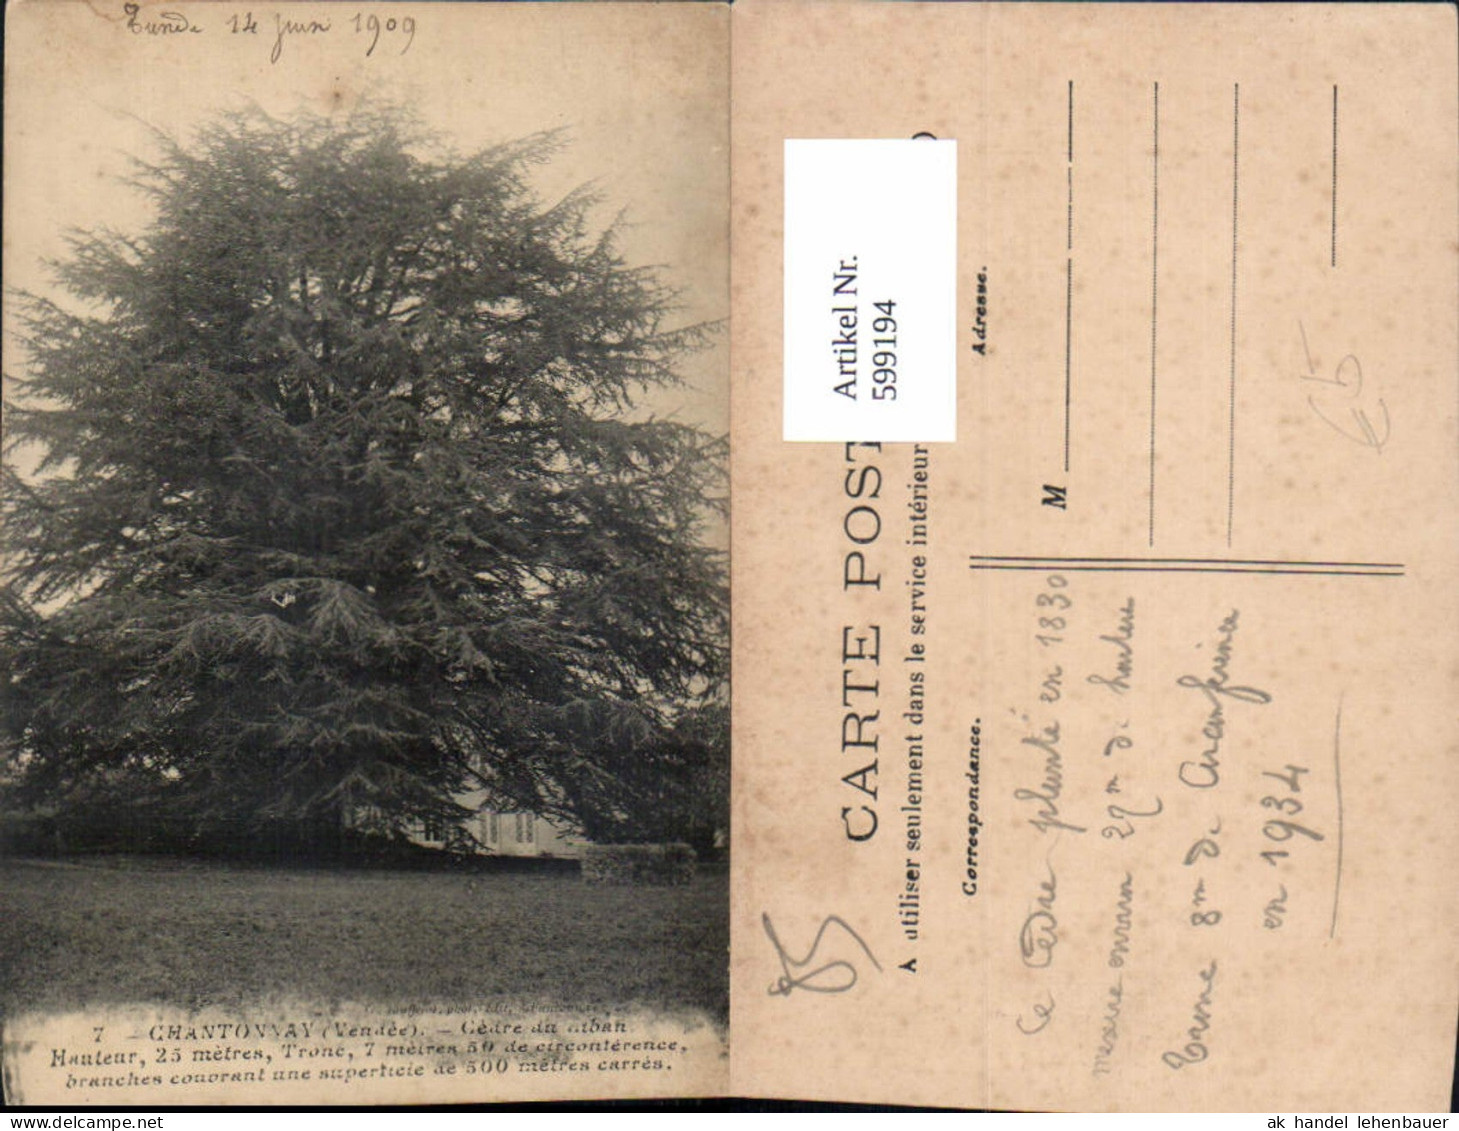 14 juin 1909
7 - CHANTONNAY (Vendée). - Cèdre du Liban
Hauteur, 25 mètres, Tronc, 7 mètres 50 de circonférence,
branches couvrant une superficie de 500 mètres carrés.
CARTE POST
A utiliser seulement dans le service intérieur
Artikel Nr.
599194
Correspondance.
Adresse.
M
Ce Cèdre planté en 1830
mesure environ 27m de hauteur
8m de circonférence
en 1934
85
€5
ak handel lehenbauer